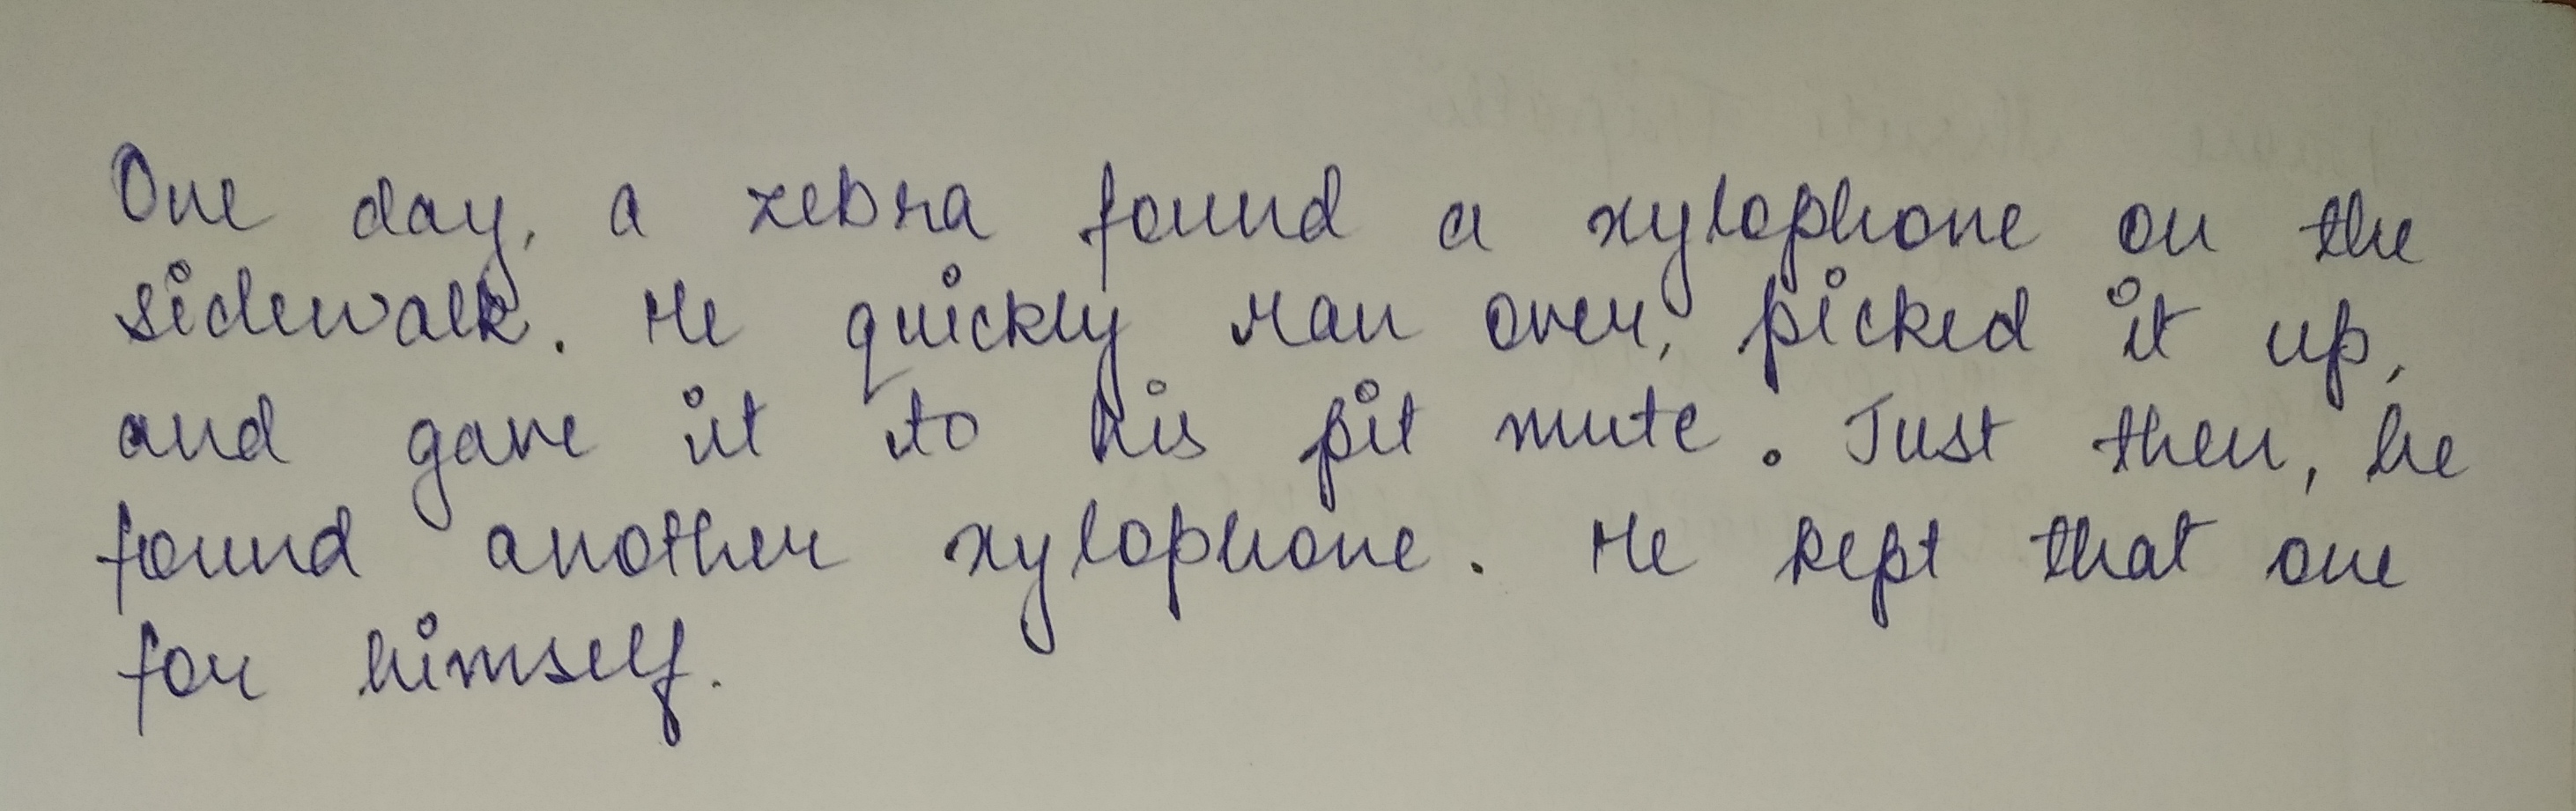 One day, a zebra found a xylophone on the
sidewalk. He quickly ran over, picked it up,
and gave it to his pit mute. Just then, he
found another xylophone. He kept that one
for himself.